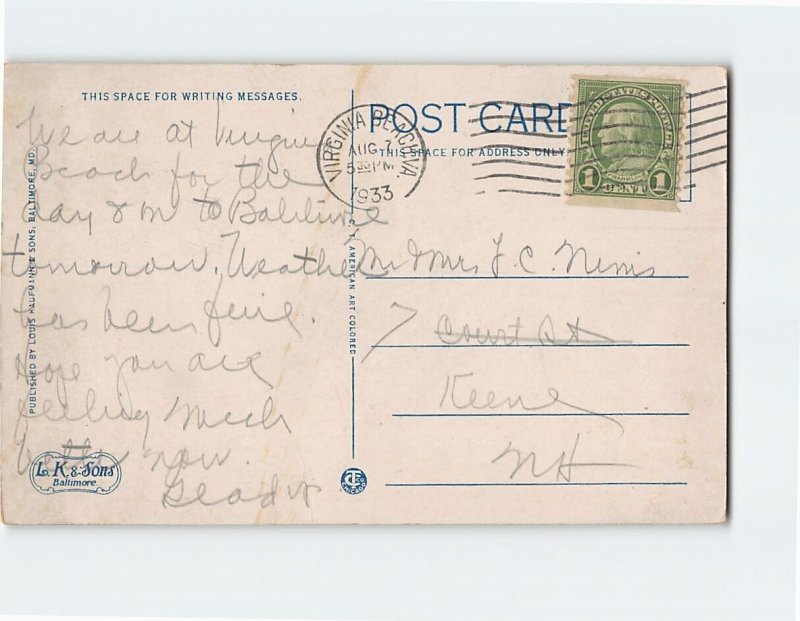 THIS SPACE FOR WRITING MESSAGES.
POST CARD
THIS SPACE FOR ADDRESS ONLY
VIRGINIA BEACH VA.
AUG 7
5 30 PM
1933
UNITED STATES POSTAGE
FRANKLIN
1 CENT 1
We are at Virginia
Beach for the
day & on to Baltimore
tomorrow. Weather
has been fine.
Hope you are
feeling much
better now.
Mr & Mrs J. C. Nims
7 Court St
Keene
NH
PUBLISHED BY LOUIS KAUFMANN & SONS, BALTIMORE, MD.
C. T. AMERICAN ART COLORED
L. K. & Sons
Baltimore